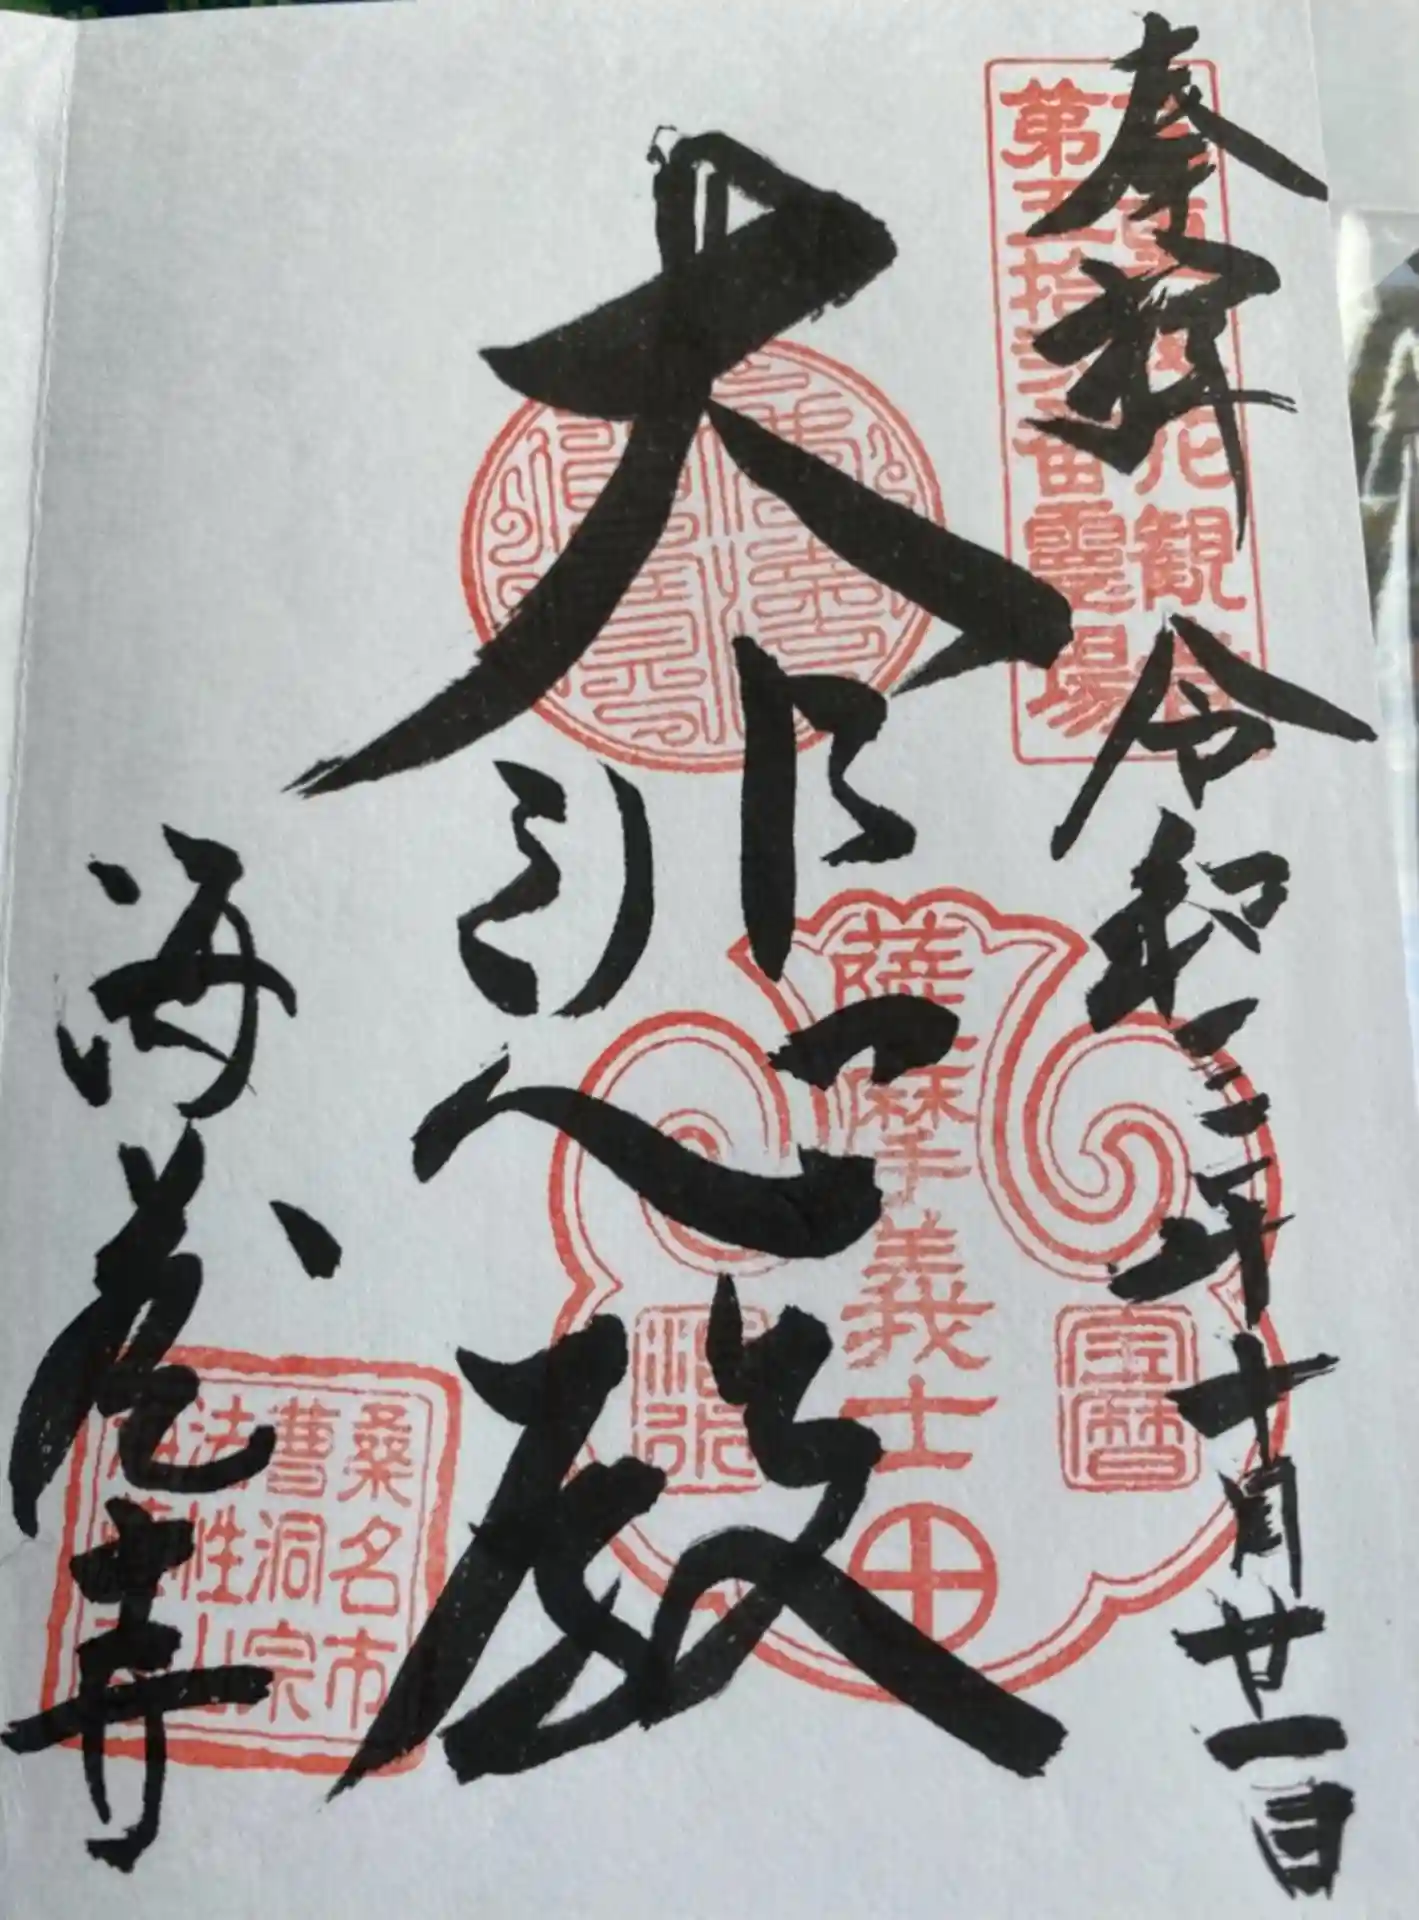 奉拝 令和三年十月廿一日
第五拾 番霊場
大悲殿
薩摩義士
宝暦
海蔵寺
桑名市
曹洞宗
法性山
海蔵寺